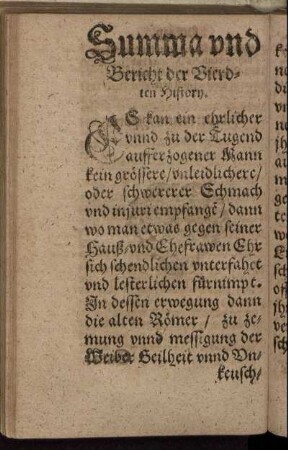 Summa vnd
Bericht der Vierd-
ten History.
ES kan ein ehrlicher
vnnd zu der Tugend
aufferzogener Mann
kein grössere/ vnleidlichere/
oder schwererer Schmach
vnd injuri empfangẽ/ dann
wo man etwas gegen seiner
Hauß/ vnd Ehefrawen Ehr
sich schendlichen vnterfahet
vnd lesterlichen fürnimpt.
In dessen erwegung dann
die alten Römer/ zu ze-
mung vnnd messigung der
Weiber Geilheit vnnd Vn-
keusch/